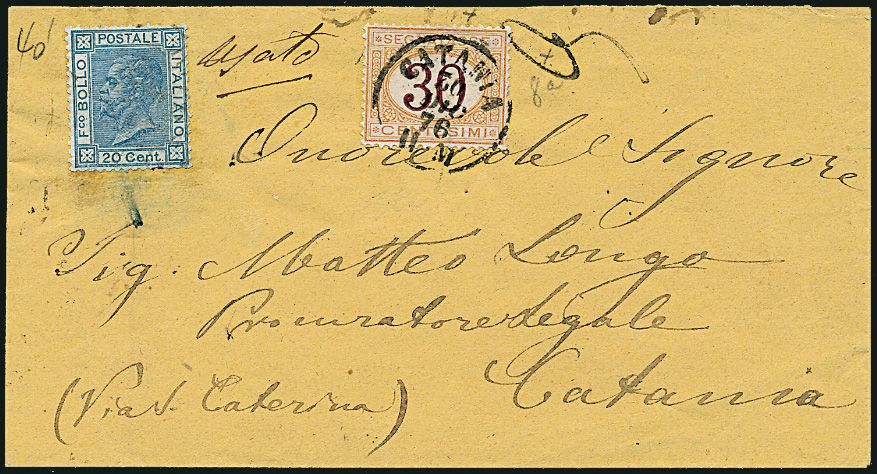 40
POSTALE
Fco BOLLO
ITALIANO
20 Cent.
usato
30
CENTESIMI
CATANIA
DIC
76
11 M
8a
Onorevole Signore
Sig. Matteo Longo
Procuratore Legale
Catania
(Via S. Caterina)